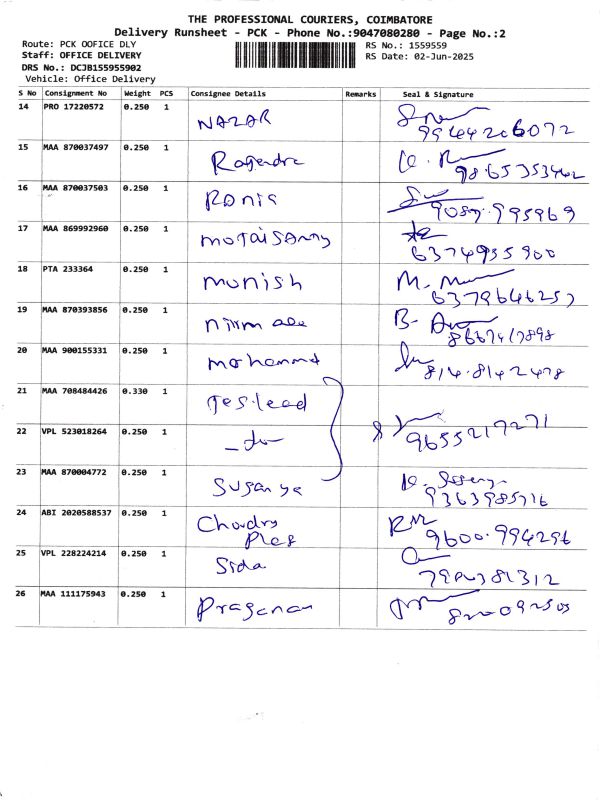 THE PROFESSIONAL COURIERS, COIMBATORE
Delivery Runsheet - PCK - Phone No.:9047080280 - Page No.:2
Route: PCK OOFICE DLY
RS No.: 1559559
Staff: OFFICE DELIVERY
RS Date: 02-Jun-2025
DRS No.: DCJB155955902
Vehicle: Office Delivery
S No Consignment No Weight PCS Consignee Details Remarks Seal & Signature
14 PRO 17220572 0.250 1 NAZAR
9944426072
15 MAA 870037497 0.250 1 Ragendra
9865353462
16 MAA 870037503 0.250 1 Rania
9089.995969
17 MAA 869992960 0.250 1
6374955900
18 PTA 233364 0.250 1 munish
6379646257
19 MAA 870393856 0.250 1
8667417898
20 MAA 900155331 0.250 1 mohammd
814.8142478
21 MAA 708484426 0.330 1
22 VPL 523018264 0.250 1
9655217271
23 MAA 870004772 0.250 1 Suganya
9363985716
24 ABI 2020588537 0.250 1
9600.994296
25 VPL 228224214 0.250 1 Sida
26 MAA 111175943 0.250 1